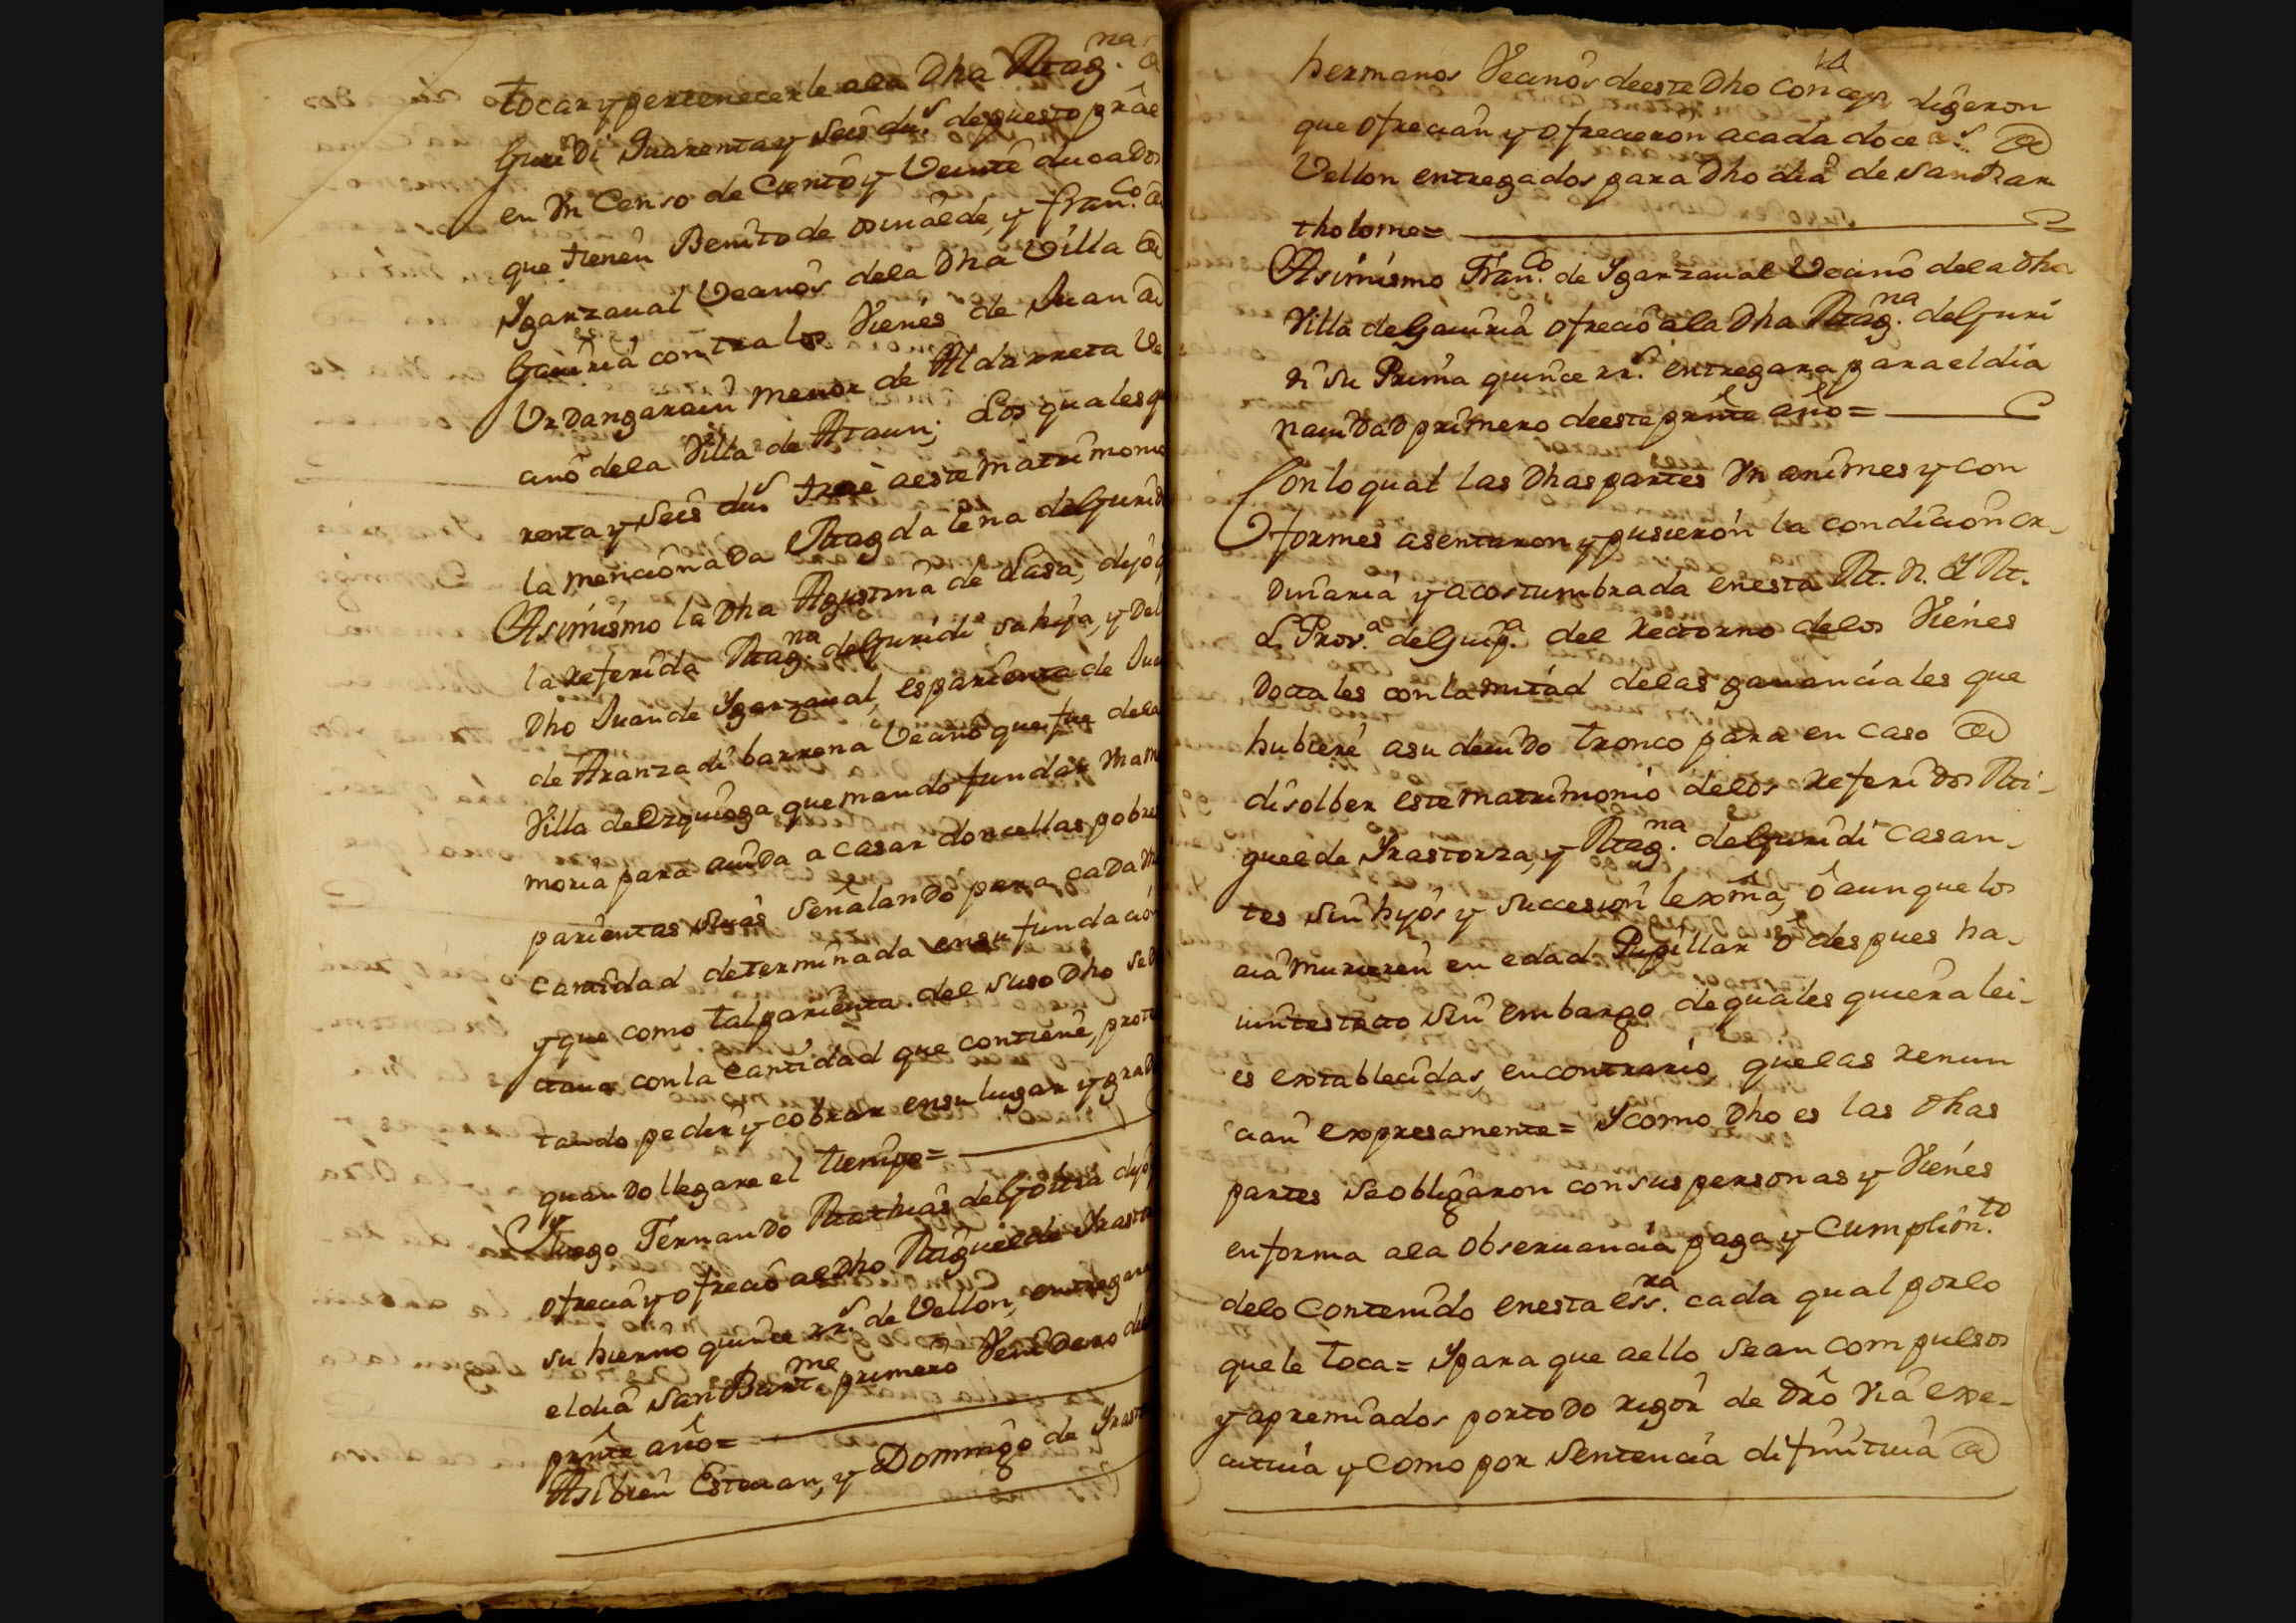 tocar y pertenecerle ala Dha Mag.na de
Guridi quarenta y seis du.s de puesto prãl
en Vn Censo de Ciento y Veinte ducados
que tienen Benito de y Fran.co de
Yganzaual Vecinos dela Dha Villa de
Gauiria contra los Vienes de Juan de
Vrdangarain menor de Aldarreta Ve
cino dela Villa de Ataun; Los quales qua
renta y seis du.s trae aeste matrimonio
la mencionada Magdalena de Guridi
Asimismo la Dha Agustina de Lasa, dijo q
la referida Mag.na de Guridi su hija, y Del
Dho Juan de Yganzaual, es parienta de Jua
de Aranzadi barrena Vecino que fue dela
Villa de Ezquioga que mando fundar Vna me
moria para aiuda a casar doncellas pobres
parientas suias señalando para cada Vna
cantidad determinada en su fundación
y que como tal parienta del suso Dho
con la cantidad que contiene, protes
tando pedir y cobrar en su lugar y grado
quando llegare el tiempo=
Luego Fernando Mathias de Goitia dijo q
ofrecia y ofrecio al Dho Miguel de Yrastorza
su hierno quince rr.s de Vellon, entregara
el dia San Bart.me primero Venidero del
prnte año=
Asi bien Esteuan, y Domingo de Yrastorza
14
hermanos Vecinos de este Dho Concejo, digeron
que ofrecian y ofrecieron a cada doce r.s de
Vellon entregados para Dho dia de San Bar
tholome=
Asimismo Fran.co de Yganzaual Vecino dela Dha
Villa de Gauiria ofrecio ala Dha Mag.na de Guri
di su Prima quince rr.s entregara para el dia
nauidad primero deeste prnte año=
Con lo qual las Dhas partes Vnanimes y con
formes asentaron y pusieron la condicion or-
dinaria y acostumbrada enesta M. N. Y M.
L. Prov.a de Guip.a del Retorno delos Vienes
Dotales con la mitad delas gananciales que
hubiere a su deuido tronco para en caso de
disolber este matrimonio delos referidos Mi-
guel de Yrastorza, y Mag.na de Guridi Casan-
tes sin hijos y succesion lexma, ò aunque los
aia murieren en edad Pupillar ò despues ha-
uintestato sin embargo de quales quiera lei-
es extablecidas en contrario, que las renun
cian expresamente= Y como Dho es las Dhas
partes se obligaron con sus personas y Vienes
en forma ala obseruancia paga y Cumplim.to
delo Contenido enesta ess.ra cada qual por lo
que le toca= Y para que aello sean compulsos
y apremiados por todo rigor de Dro Via exe-
cutiua y Como por Sentencia difinitiua de